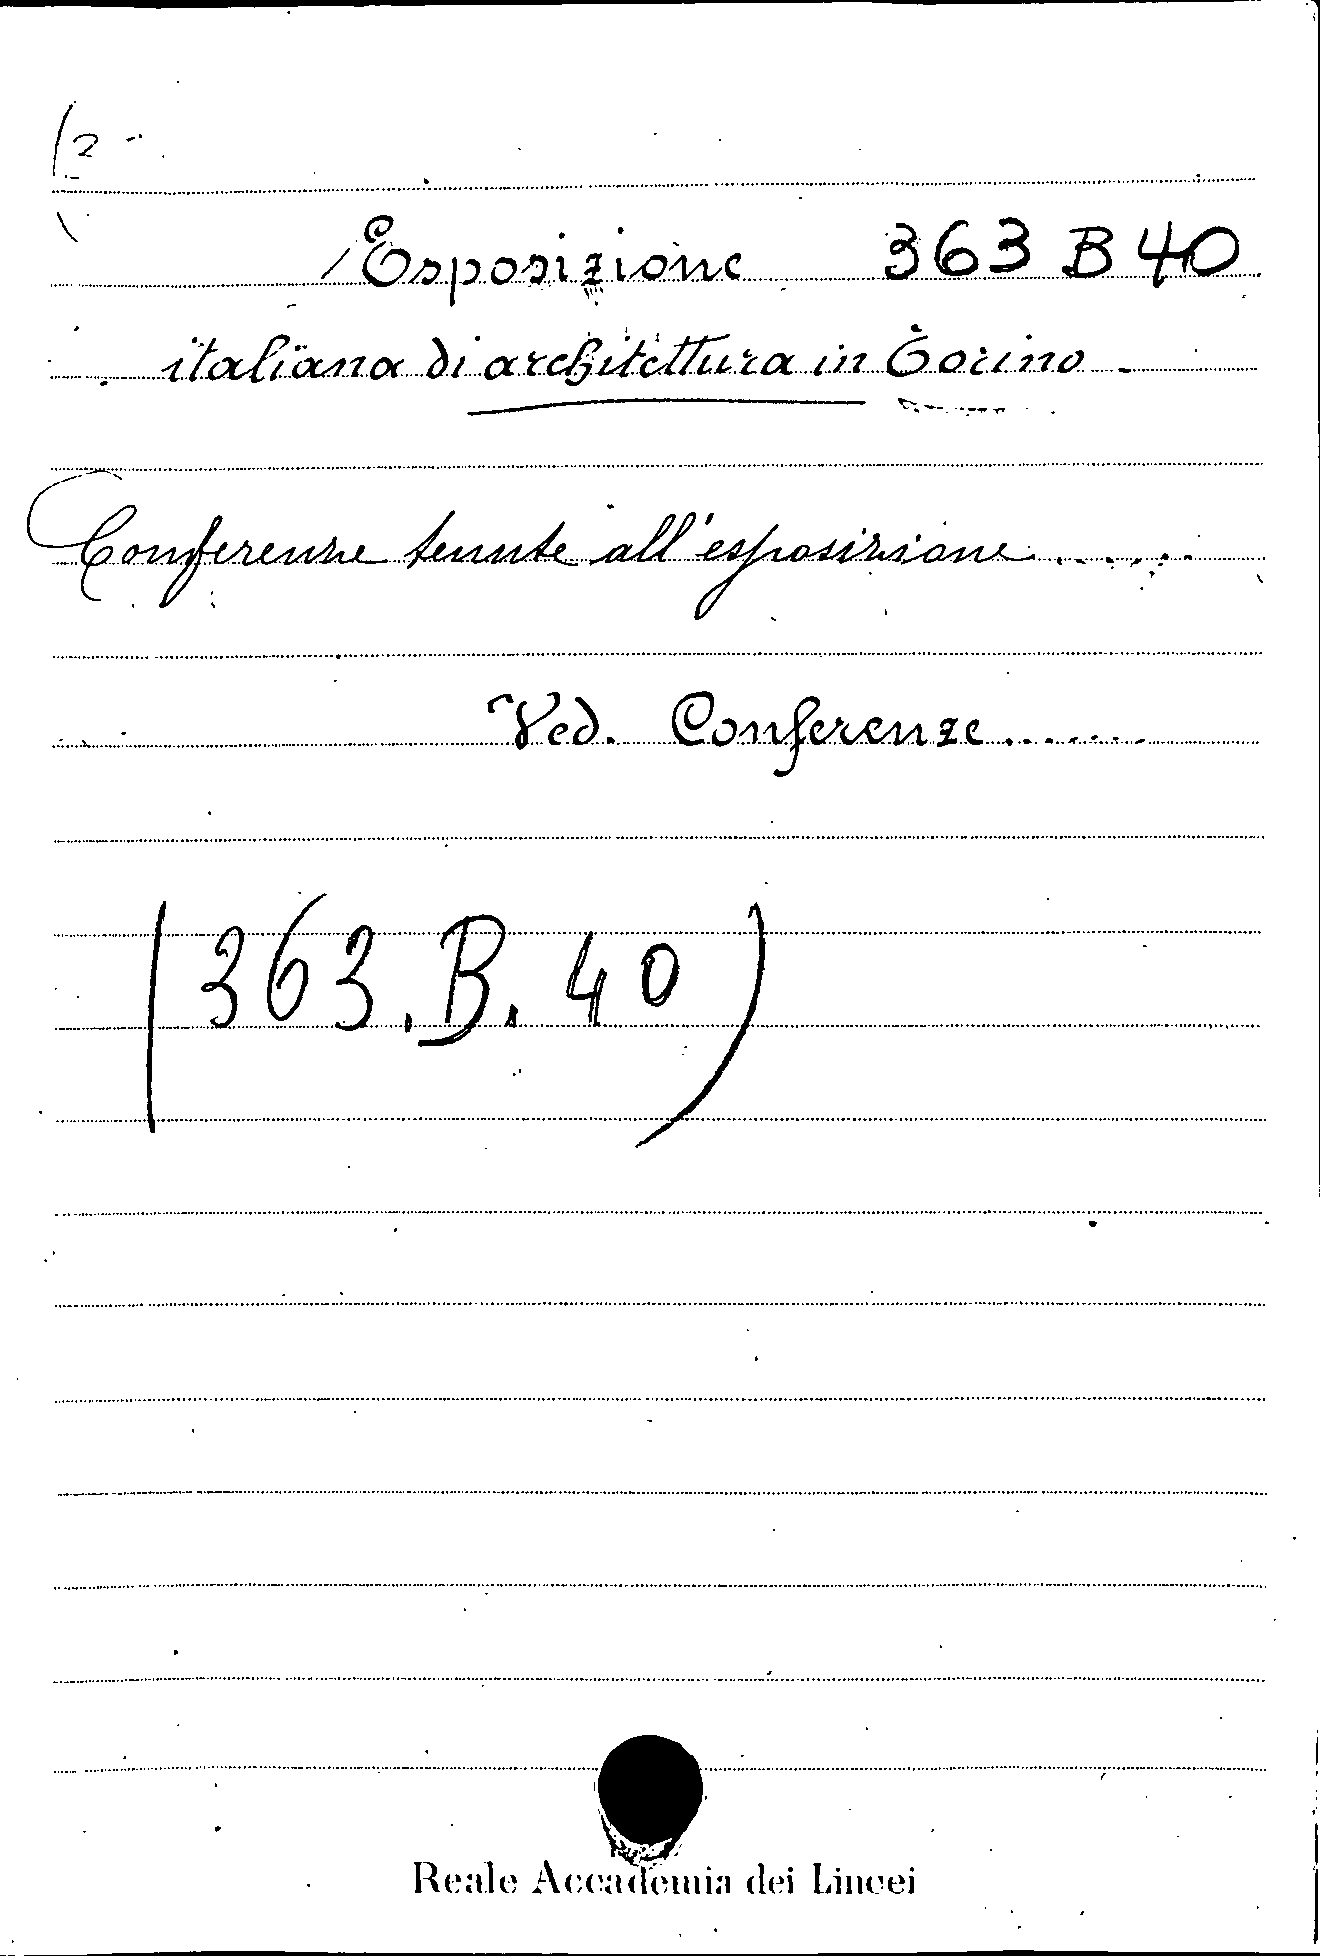 Esposizione 363 B 40
italiana di architettura in Torino -
Conferenze tenute all'esposizione ......
Ved. Conferenze .......
(363.B.40)
Reale Accademia dei Lincei